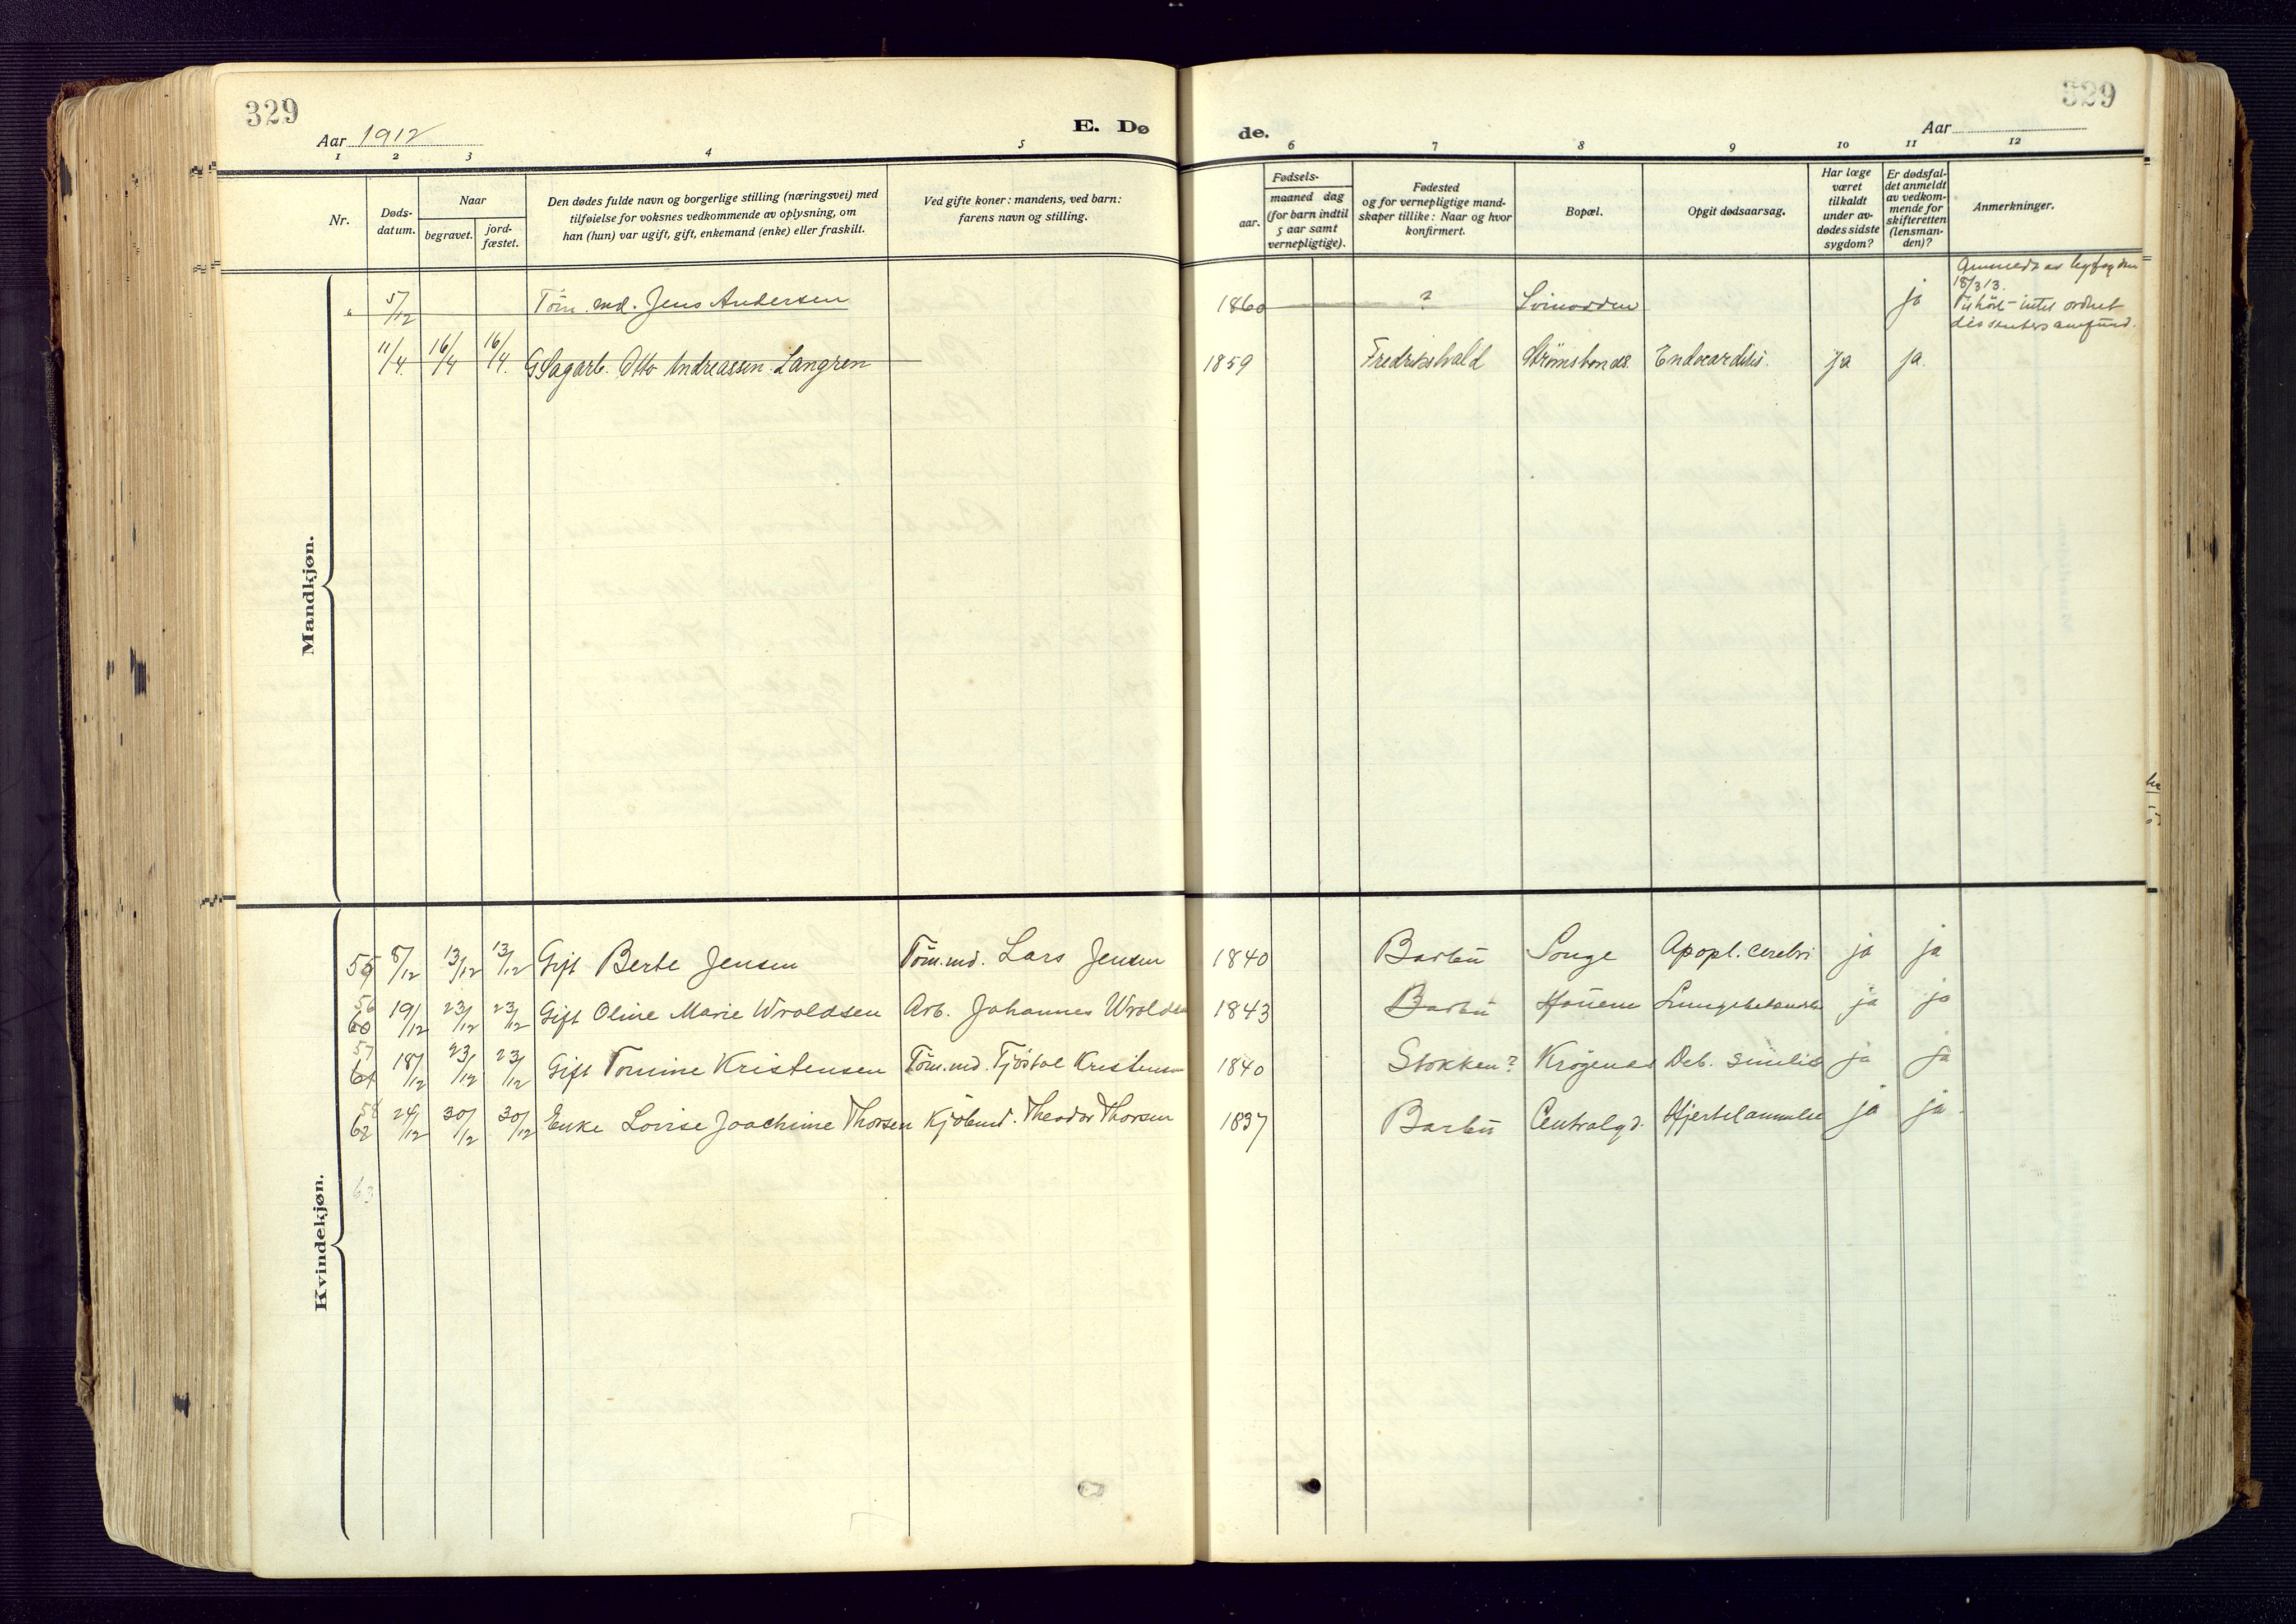 329
529
Aar 1912
E. Dø
de.
Aar
1 2 3 4 5 6 7 8 9 10 11 12
Nr.
Døds-
datum.
Naar
begravet.
jord-
fæstet.
Den dødes fulde navn og borgerlige stilling (næringsvei) med
tilføielse for voksnes vedkommende av oplysning, om
han (hun) var ugift, gift, enkemand (enke) eller fraskilt.
Ved gifte koner: mandens, ved barn:
farens navn og stilling.
Fødsels-
aar.
maaned dag
(for barn indtil
5 aar samt
vernepligtige).
Fødested
og for vernepligtige mand-
skaper tillike: Naar og hvor
konfirmert.
Bopæl.
Opgit dødsaarsag.
Har læge
været
tilkaldt
under av-
dødes sidste
sygdom?
Er dødsfal-
det anmeldt
av vedkom-
mende for
skifteretten
(lensman-
den)?
Anmerkninger.
Mandkjøn.
" 5/12 Töm.md. Jens Andersen 1860 ? Svinodden ja
18/3 13.
Tilhört intet ordnet
dissentersamfund.
11/4 16/4 16/4 G Sagarb. Otto Andreassen Langren 1859 Fredrikshald Strømsbonds. Endocarditis. ja ja.
Kvindekjøn.
55 8/12 13/12 13/12 Gift Berte Jensen Töm.md. Lars Jensen 1840 Barbu Songe Apopl. cerebri ja ja
56 60 19/12 23/12 23/12 Gift Oline Marie Wroldsen Arb. Johannes Wroldsen 1843 Barbu ja ja
57 61 18/12 23/12 23/12 Gift Tomine Kristensen Töm.md. Tjöstol Kristensen 1840 Stokken? Krögenes Deb. senilis ja ja
58 62 24/12 30/12 30/12 Enke Lovise Joachime Thorsen Kjöbmd. Theodor Thorsen 1837 Barbu Centralgd. Hjertelammelse ja ja.
63